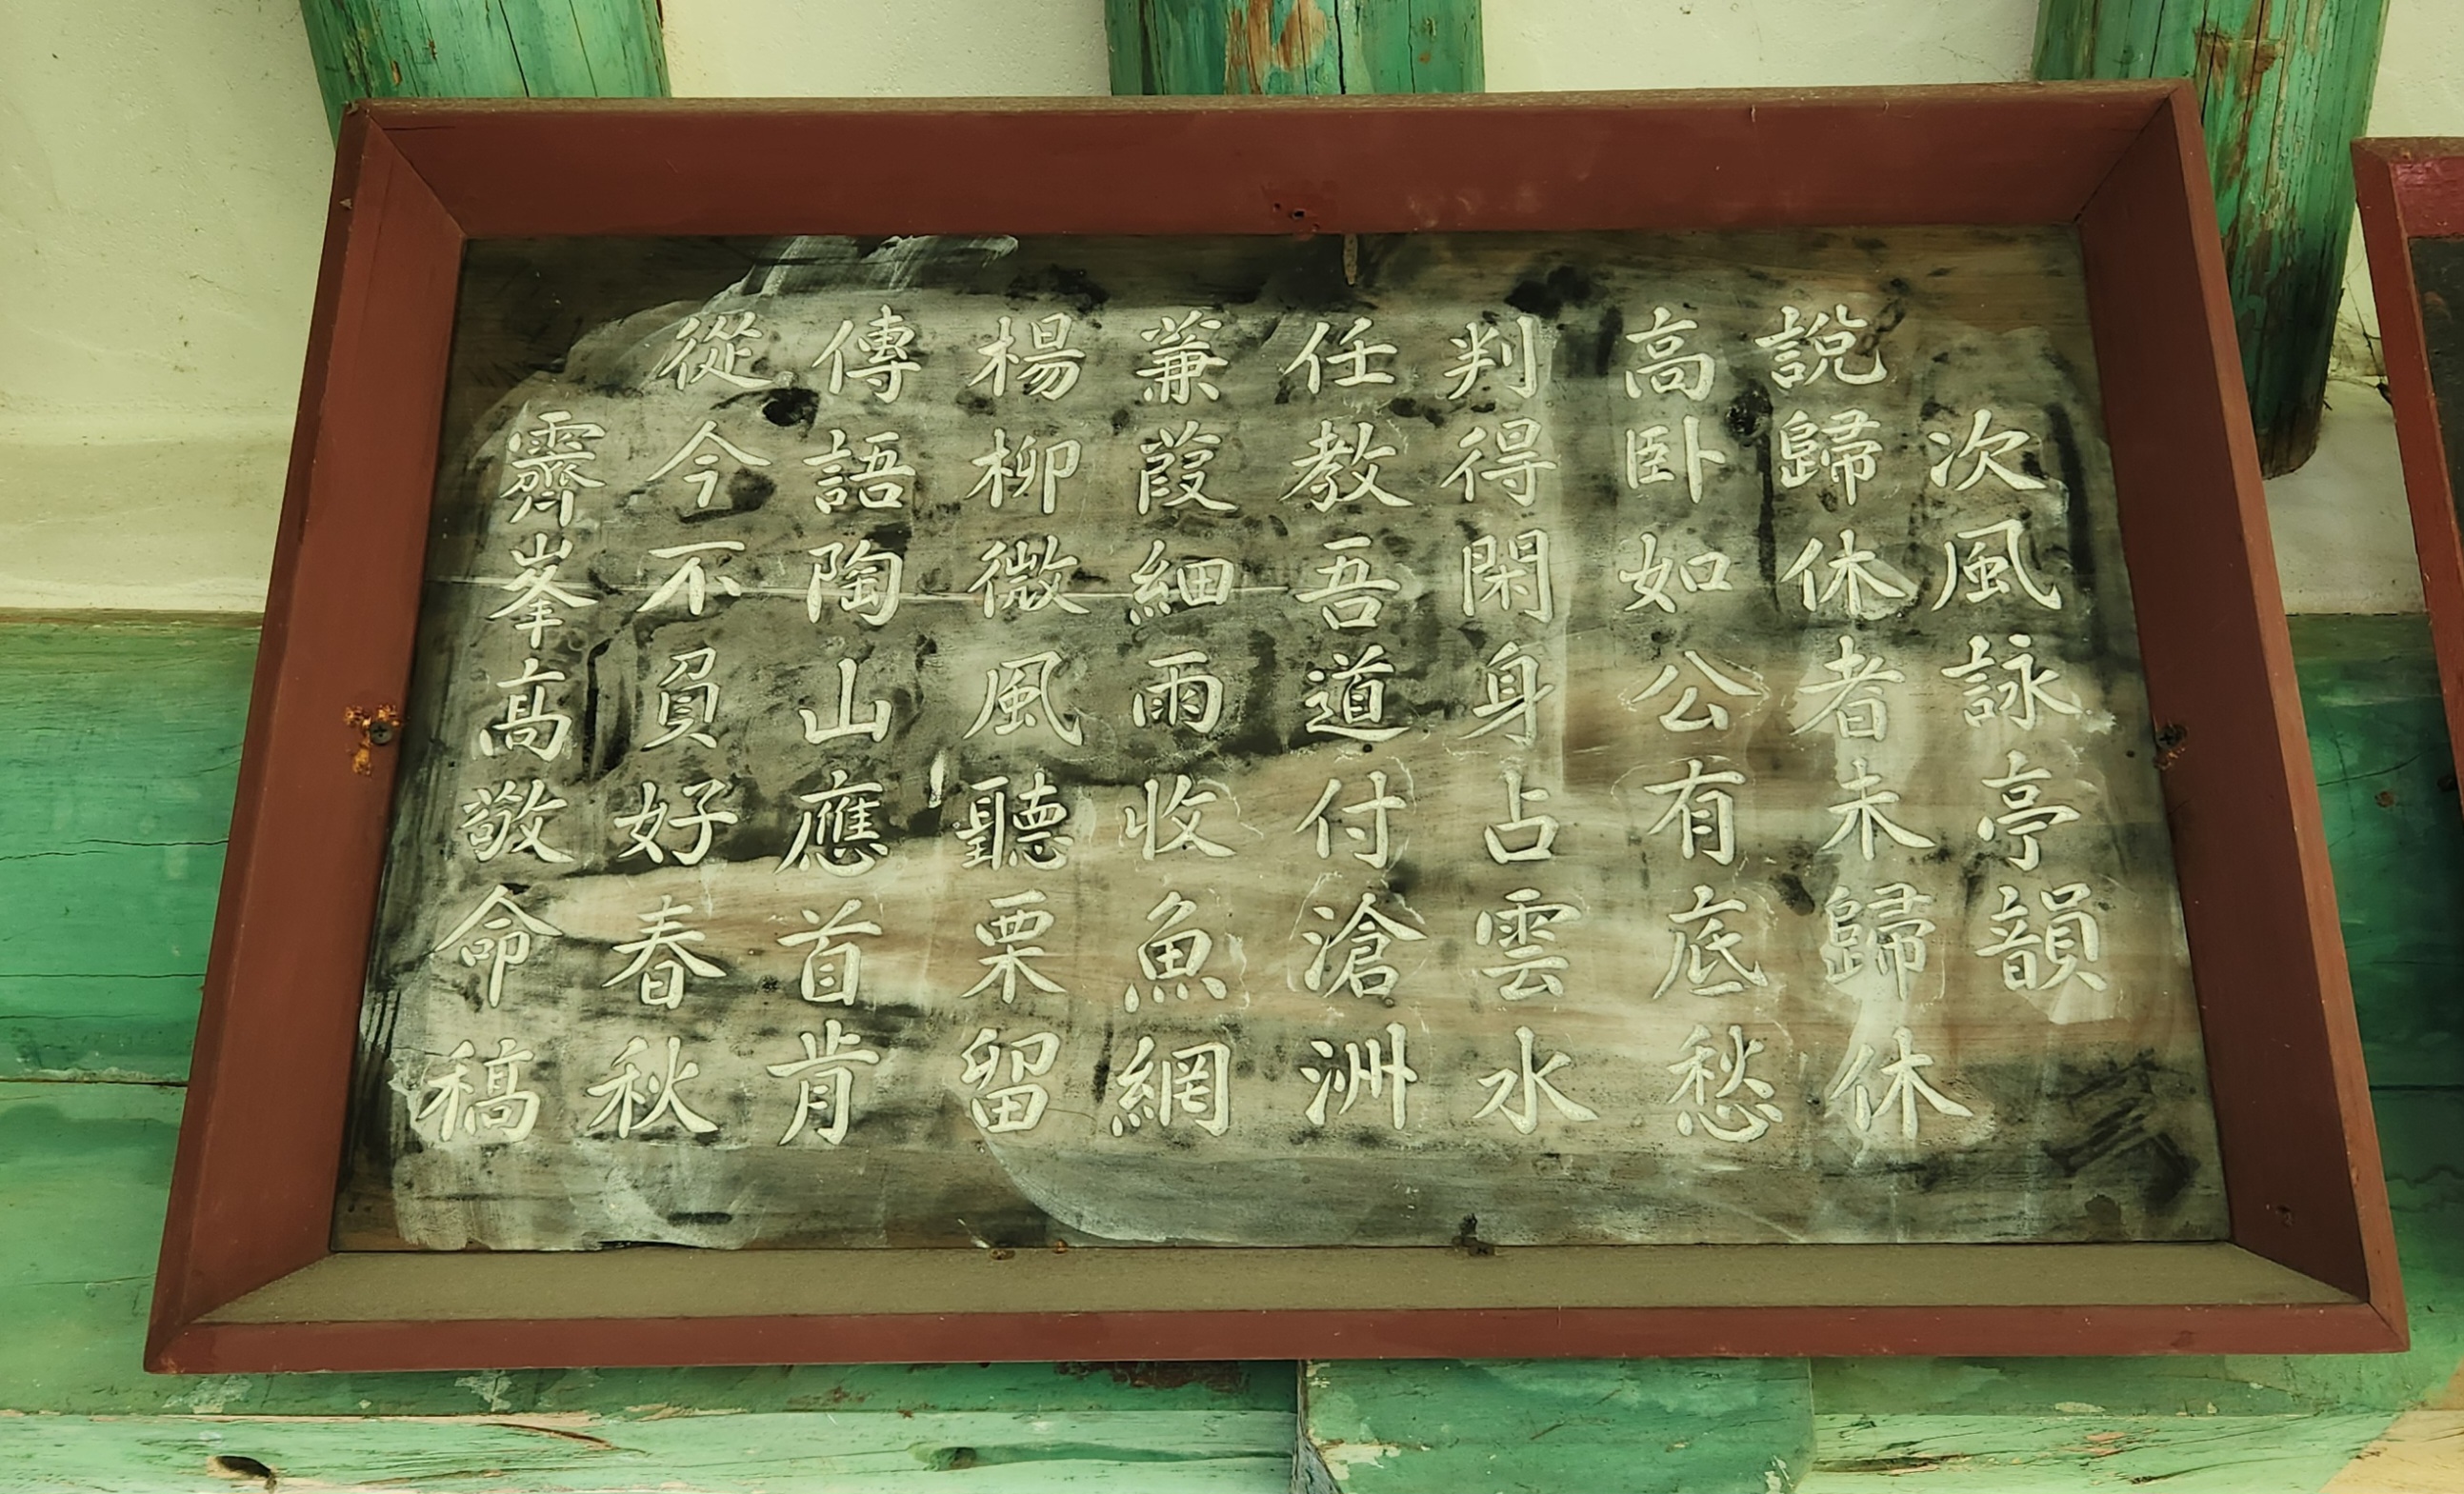 次風詠亭韻
說歸休者未歸休
高卧如公有底愁
判得閑身占雲水
任教吾道付滄洲
蒹葭細雨收魚網
楊柳微風聽栗留
傳語陶山應首肯
從今不負好春秋
霽峯高敬命稿